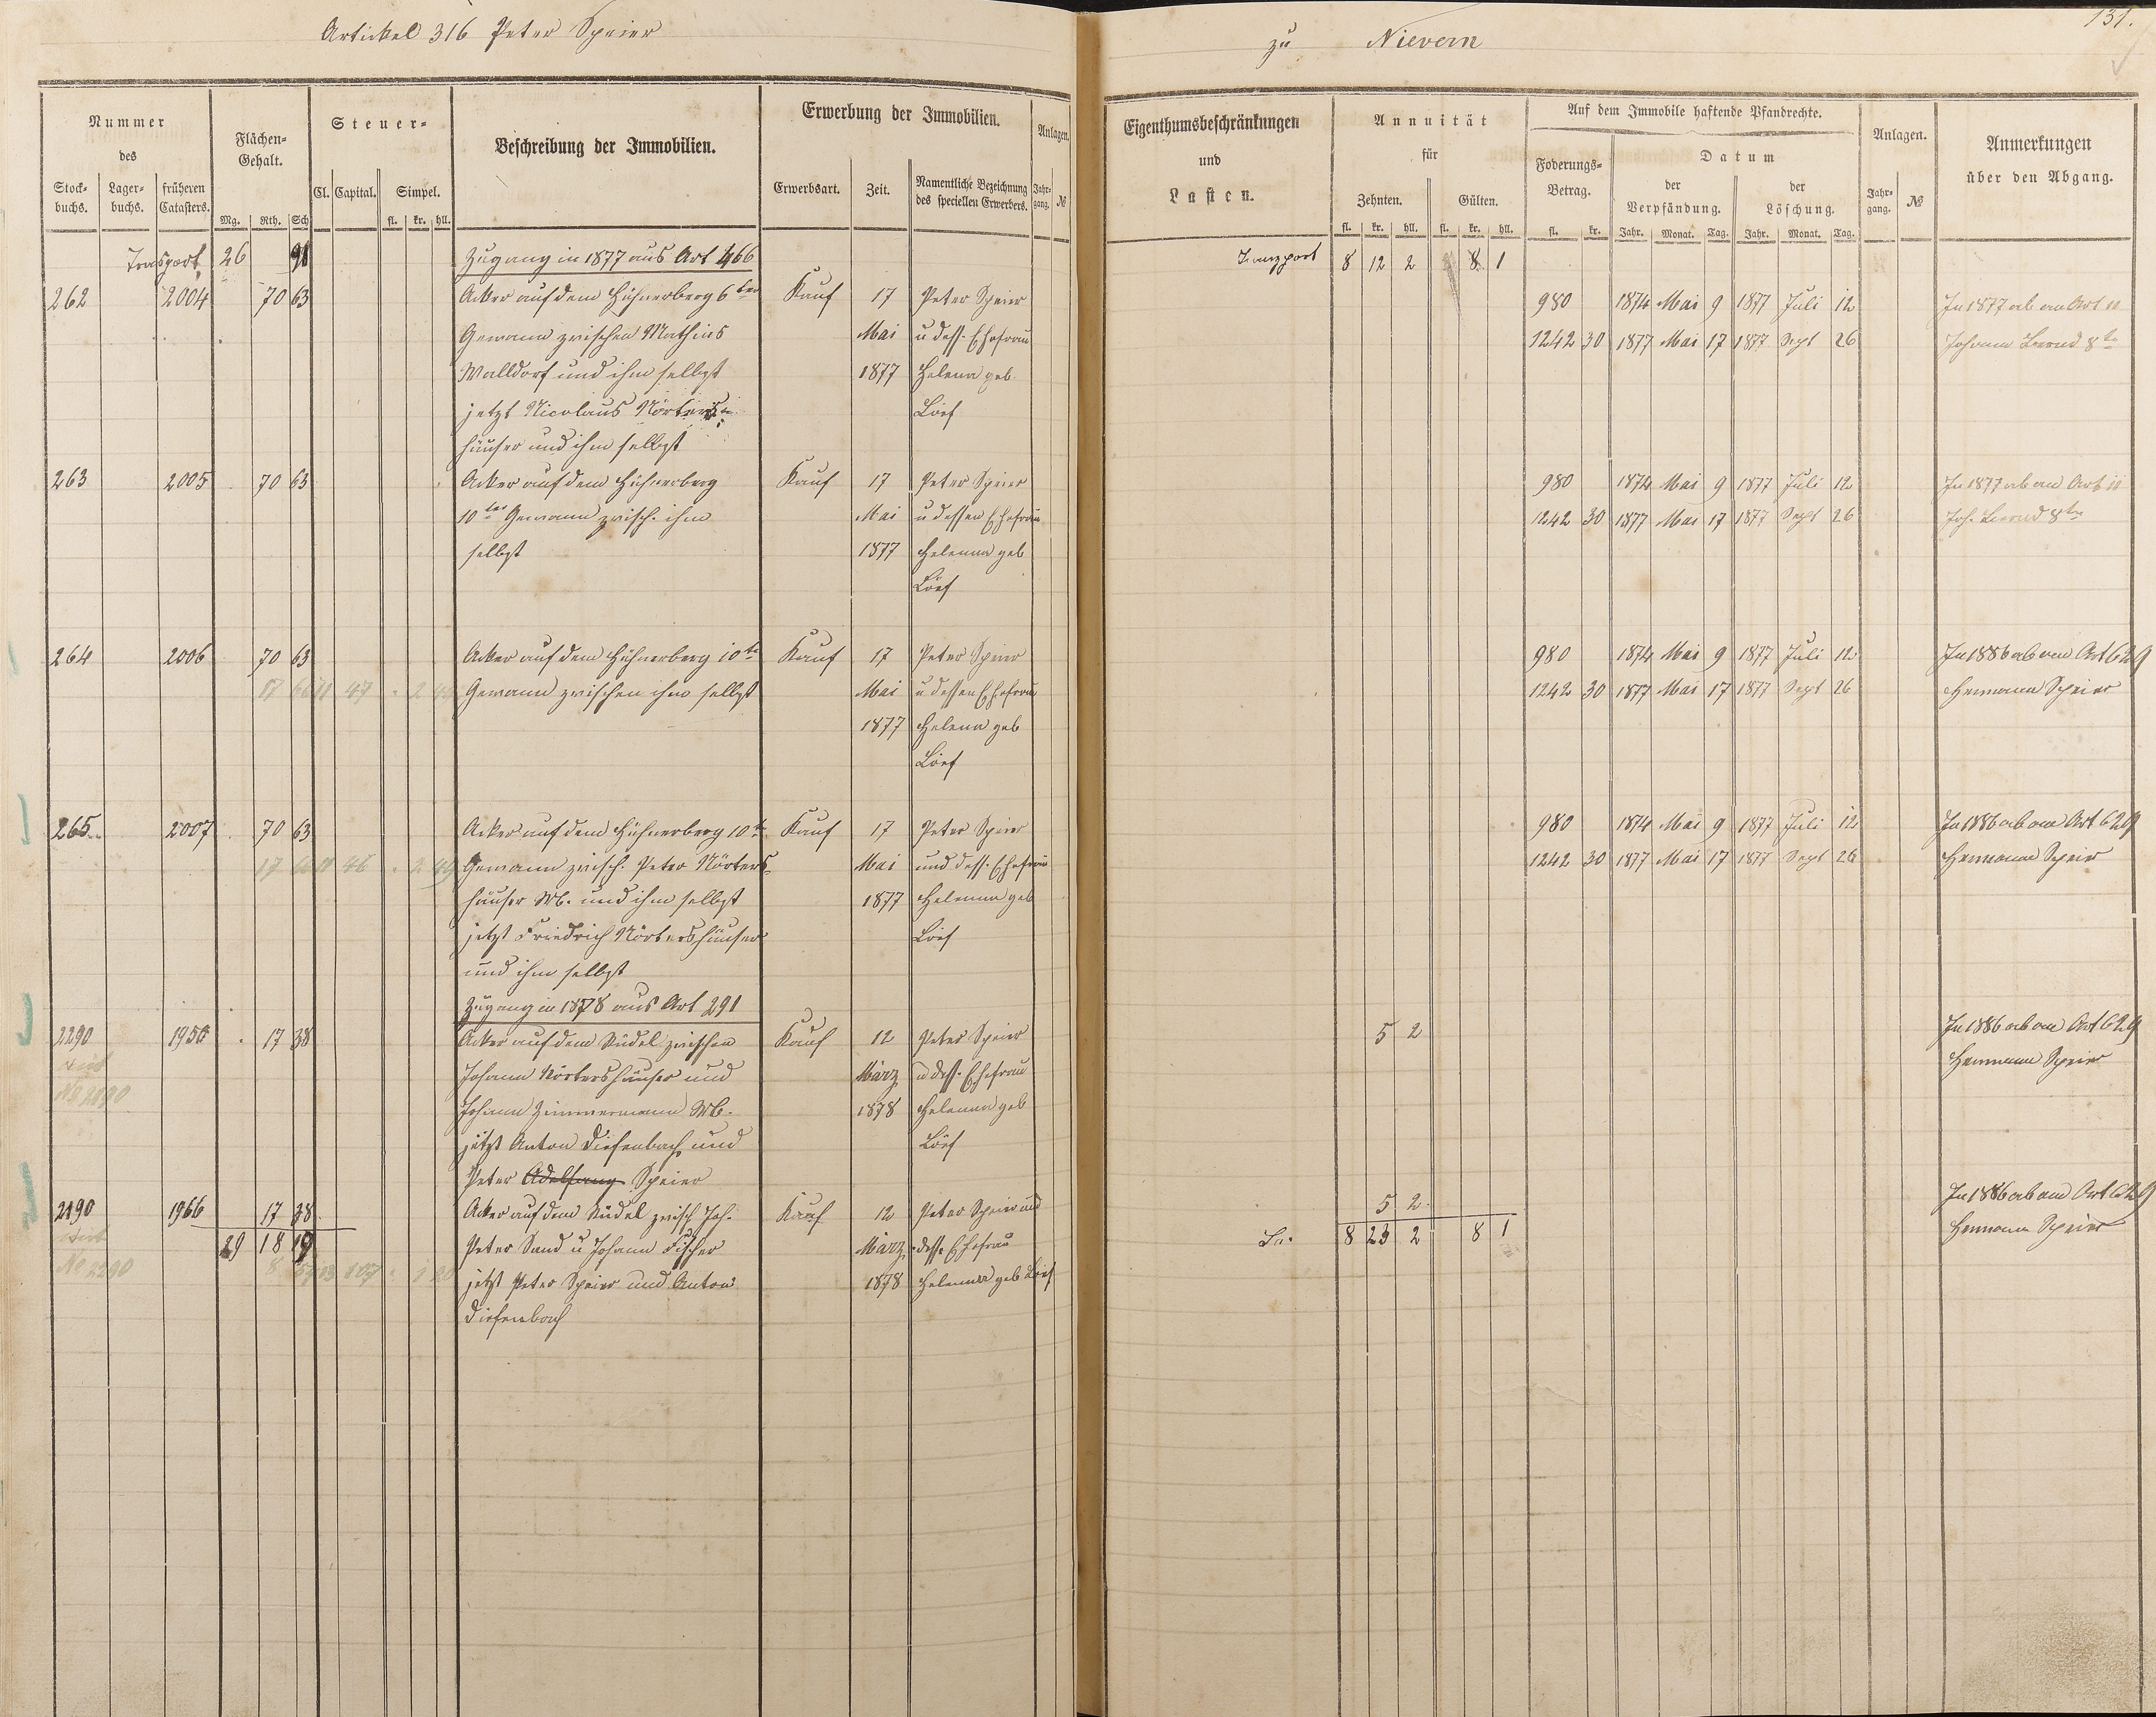 Artickel 316 Peter Speier
zu Nievern
131.
Nummer des
Stock-buchs. Lager-buchs. früheren Catasters.
Flächen-Gehalt.
Mg. Rth. Sch
Steuer-
Cl. Capital. Simpel.
fl. kr. hll.
Beschreibung der Immobilien.
Erwerbung der Immobilien.
Erwerbsart. Zeit. Namentliche Bezeichnung des speciellen Erwerbers.
Anlagen.
Jahr-gang. №
Eigenthumsbeschränkungen
und
Lasten.
Annuität
für
Zehnten. Gülten.
fl. kr. hll. fl. kr. hll.
Auf dem Immobile haftende Pfandrechte.
Foderungs-Betrag.
fl. kr.
Datum
der Verpfändung. der Löschung.
Jahr. Monat. Tag. Jahr. Monat. Tag.
Anlagen.
Jahr-gang. №
Anmerkungen
über den Abgang.
Transport 26 91 Zugang in 1877 aus Art 466 Transport 8 12 2 8 1
262 2004 70 63 Acker auf dem Hühnerberg 6ter Kauf 17 Peter Speier 980 1874 Mai 9 1877 Juli 12 In 1877 ab an Art
Gewann zwischen Mathias Mai u dess. Ehefrau 1242 30 1877 Mai 17 1877 Sept 26 Johann 8te
Walldorf und ihm selbst 1877 Helena geb.
jetzt Nicolaus Nörters- Löif
häuser und ihm selbst
263 2005 70 63 Acker auf dem Hühnerberg Kauf 17 Peter Speier 980 1874 Mai 9 1877 Juli 12 In 1877 ab an Art
10ter Gewann zwisch. ihm Mai u dessen Ehefrau 1242 30 1877 Mai 17 1877 Sept 26 Joh. 8te
selbst 1877 Helenna geb
Löif
264 2006 70 63 Acker auf dem Hühnerberg 10te Kauf 17 Peter Speier 980 1874 Mai 9 1877 Juli 12 In 1886 ab an Art 629
17 47 Gewann zwischen ihm selbst Mai u dessen Ehefrau 1242 30 1877 Mai 17 1877 Sept 26 Hermann Speier
1877 Helena geb
Löif
265 2007 70 63 Acker auf dem Hühnerberg 10te Kauf 17 Peter Speier 980 1874 Mai 9 1877 Juli 12 In 1886 ab an Art 629
17 46 Gewann zwisch. Peter Nörters- Mai und dess. Ehefrau 1242 30 1877 Mai 17 1877 Sept 26 Hermann Speier
häuser Wb. und ihm selbst 1877 Helenna geb
jetzt Friedrich Nörtershäuser Löif
und ihm selbst
Zugang in 1878 aus Art 291
2290 1950 17 38 Acker auf dem Rüdel zwischen Kauf 12 Peter Speier 5 2 In 1886 ab an Art 629
Johann Nörtershäuser und März u dess. Ehefrau Hermann Speier
Johann Zimmermann Wb. 1878 Helenna geb
jetzt Anton Diefenbach und Löif
Peter Speier
2190 1966 17 38 Acker auf dem Rüdel zwisch Joh. Kauf 12 Peter Speier und 5 2 In 1886 ab an Art 629
29 18 19 Peter Sand u Johann Fischer März dess. Ehefrau 8 23 2 8 1 Hermann Speier
No 2290 jetzt Peter Speier und Anton 1878 Helenna geb Löif
Diefenbach